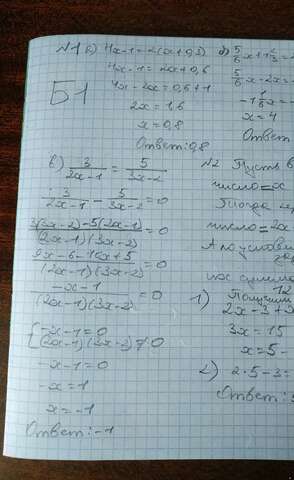 Б1
N1 а) 4x-1=2(x+0,3)
4x-1=2x+0,6
4x-2x=0,6+1
2x=1,6
x=0,8
Ответ: 0,8
б) 5/6x+1 2/3=
5/6x-2x=
-1 1/6x=-
x=4
Ответ
в) 3/(2x-1) = 5/(3x-2)
3/(2x-1) - 5/(3x-2) =0
(3(3x-2)-5(2x-1))/((2x-1)(3x-2)) =0
(9x-6-10x+5)/((2x-1)(3x-2))
(-x-1)/((2x-1)(3x-2)) =0
{-x-1=0
(2x-1)(3x-2)≠0
-x-1=0
-x=1
x=-1
Ответ: -1
N2 Пусть в
число=x
Тогда
число=2x
А
их сумма
12
1) Получим
2x-3+x
3x=15
x=5-
2) 2·5-3=
Ответ: